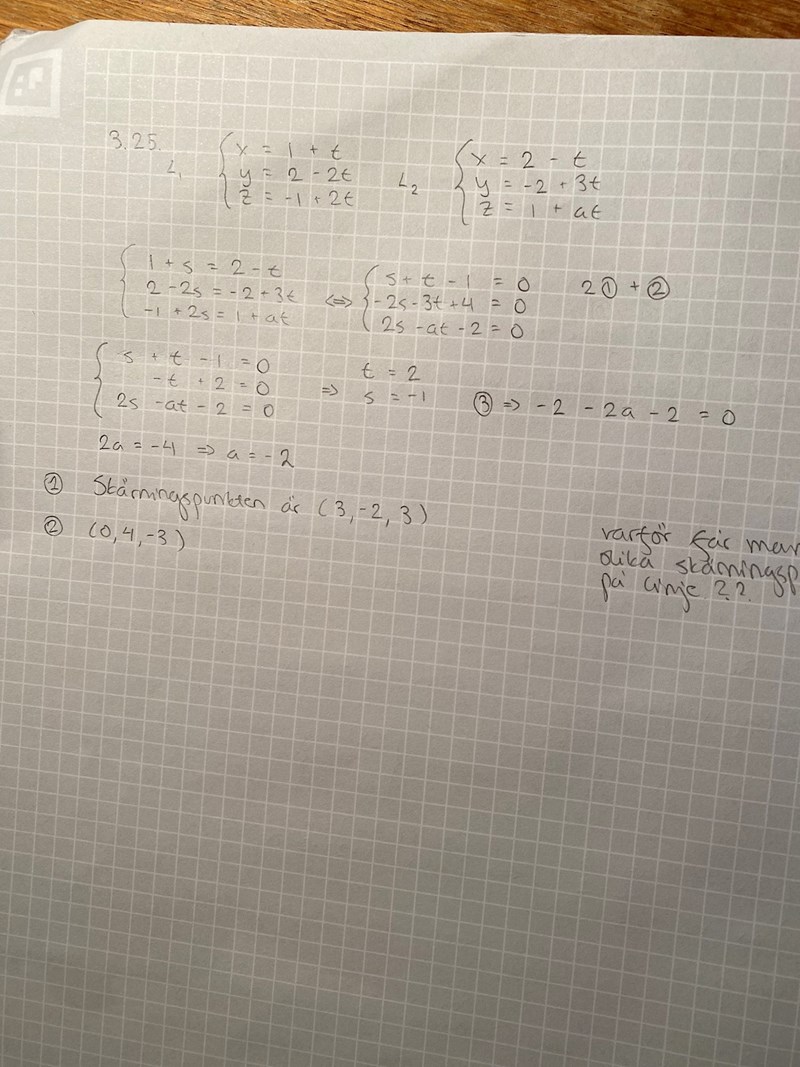 3.25.
L₁ { x = 1 + t
y = 2 - 2t
z = -1 + 2t
L₂ { x = 2 - t
y = -2 + 3t
z = 1 + at
{ 1 + s = 2 - t
2 - 2s = -2 + 3t
-1 + 2s = 1 + at
⇔ { s + t - 1 = 0
-2s - 3t + 4 = 0
2s - at - 2 = 0
2① + ②
{ s + t - 1 = 0
-t + 2 = 0
2s - at - 2 = 0
⇒ t = 2
s = -1
③ ⇒ -2 - 2a - 2 = 0
2a = -4 ⇒ a = -2
① Skärningspunkten är (3, -2, 3)
② (0, 4, -3)
varför får man
olika skärningsp
på linje 2?